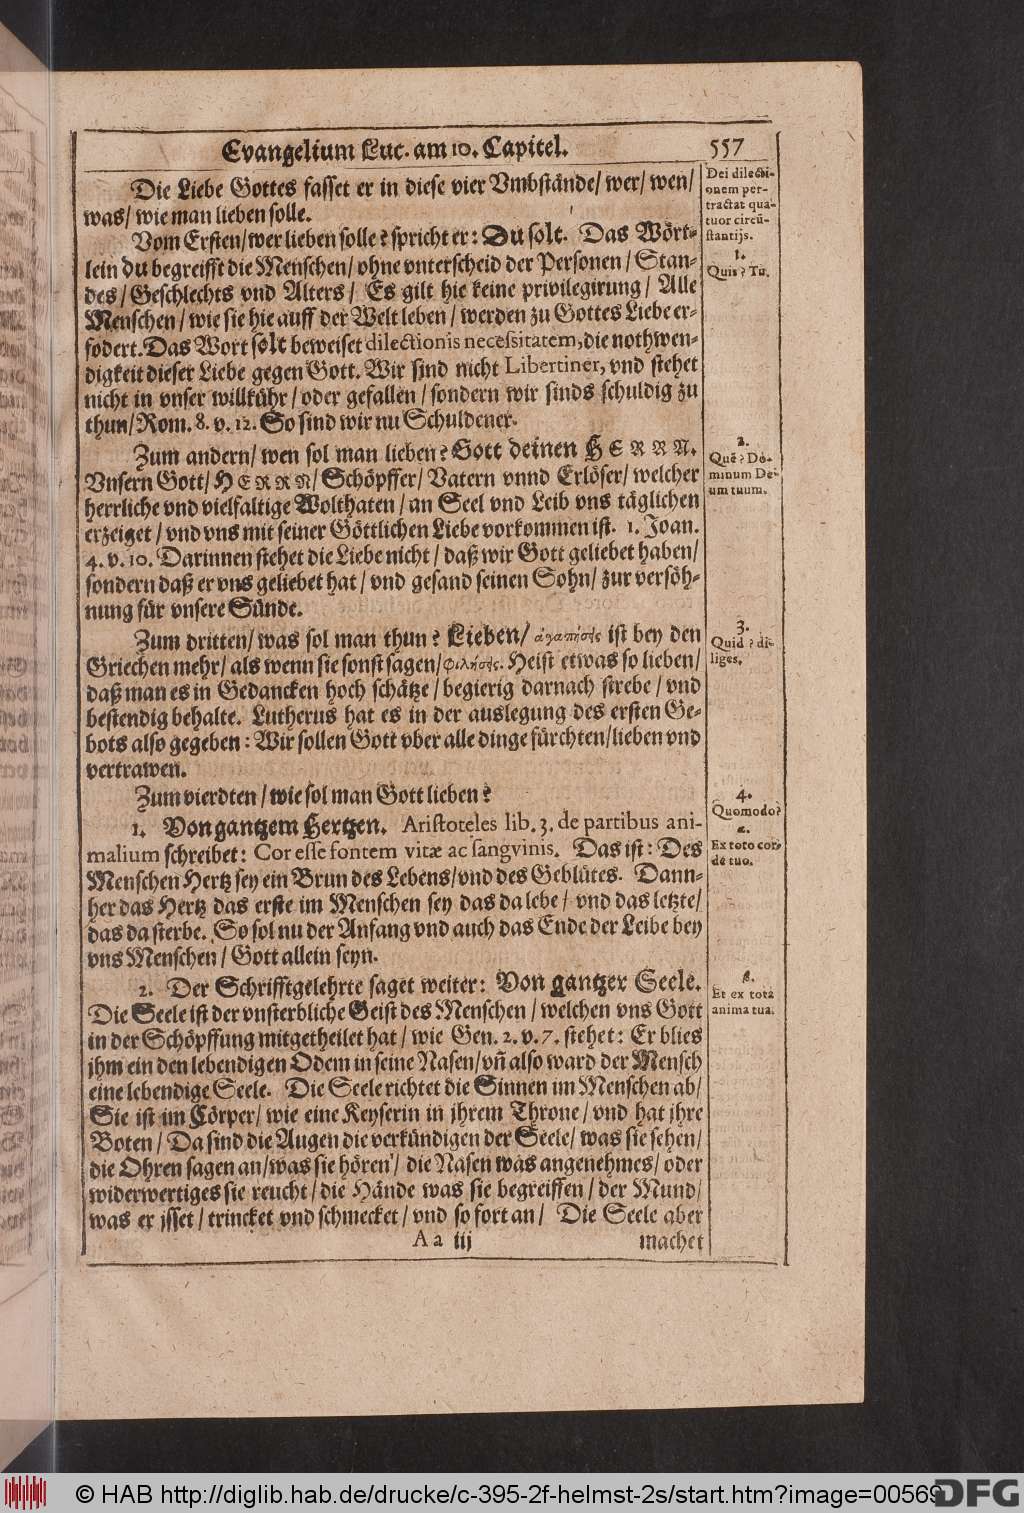 Evangelium Luc. am 10. Capitel.
557
Die Liebe Gottes fasset er in diese vier Vmbstände/ wer/ wen/
was/ wie man lieben solle.
Vom Ersten/ wer lieben solle? spricht er: Du solt. Das Wört-
lein du begreifft die Menschen/ ohne vnterscheid der Personen/ Stan-
des/ Geschlechts vnd Alters/ Es gilt hie keine privilegirung/ Alle
Menschen/ wie sie hie auff der Welt leben/ werden zu Gottes Liebe er-
fodert. Das Wort solt beweiset dilectionis necessitatem, die nothwen-
digkeit dieser Liebe gegen Gott. Wir sind nicht Libertiner, vnd stehet
nicht in vnser willkühr/ oder gefallen/ sondern wir sinds schuldig zu
thun/ Rom. 8. v. 12. So sind wir nu Schuldener.
Zum andern/ wen sol man lieben? Gott deinen HERRN.
Vnsern Gott/ HERRN/ Schöpffer/ Vatern vnnd Erlöser/ welcher
herrliche vnd vielfaltige Wolthaten/ an Seel vnd Leib vns täglichen
erzeiget/ vnd vns mit seiner Göttlichen Liebe vorkommen ist. 1. Joan.
4. v. 10. Darinnen stehet die Liebe nicht/ daß wir Gott geliebet haben/
sondern daß er vns geliebet hat/ vnd gesand seinen Sohn/ zur versöh-
nung für vnsere Sünde.
Zum dritten/ was sol man thun? Lieben/ ἀγαπήσῃς ist bey den
Griechen mehr/ als wenn sie sonst sagen/ φιλήσῃς. Heist etwas so lieben/
daß man es in Gedancken hoch schätze/ begierig darnach strebe/ vnd
bestendig behalte. Lutherus hat es in der auslegung des ersten Ge-
bots also gegeben: Wir sollen Gott vber alle dinge fürchten/ lieben vnd
vertrawen.
Zum vierdten/ wie sol man Gott lieben?
1. Von gantzem Hertzen. Aristoteles lib. 3. de partibus ani-
malium schreibet: Cor esse fontem vitæ ac sangvinis. Das ist: Des
Menschen Hertz sey ein Brun des Lebens/ vnd des Geblütes. Dann-
her das Hertz das erste im Menschen sey das da lebe/ vnd das letzte/
das da sterbe. So sol nu der Anfang vnd auch das Ende der Leibe bey
vns Menschen/ Gott allein seyn.
2. Der Schrifftgelehrte saget weiter: Von gantzer Seele.
Die Seele ist der vnsterbliche Geist des Menschen/ welchen vns Gott
in der Schöpffung mitgetheilet hat/ wie Gen. 2. v. 7. stehet: Er blies
jhm ein den lebendigen Odem in seine Nasen/ vñ also ward der Mensch
eine lebendige Seele. Die Seele richtet die Sinnen im Menschen ab/
Sie ist im Cörper/ wie eine Keyserin in jhrem Throne/ vnd hat jhre
Boten/ Da sind die Augen die verkündigen der Seele/ was sie sehen/
die Ohren sagen an/ was sie hören/ die Nasen was angenehmes/ oder
widerwertiges sie reucht/ die Hände was sie begreiffen/ der Mund/
was er jsset/ trincket vnd schmecket/ vnd so fort an/ Die Seele aber
Aa iij
machet
Dei dilecti-
onem per-
tractat qua-
tuor circū-
stantijs.
1.
Quis? Tu.
2.
Quē? Do-
minum De-
um tuum.
3.
Quid? di-
liges.
4.
Quomodo?
α.
Ex toto cor-
de tuo.
β.
Et ex tota
anima tua.
© HAB http://diglib.hab.de/drucke/c-395-2f-helmst-2s/start.htm?image=00569
DFG